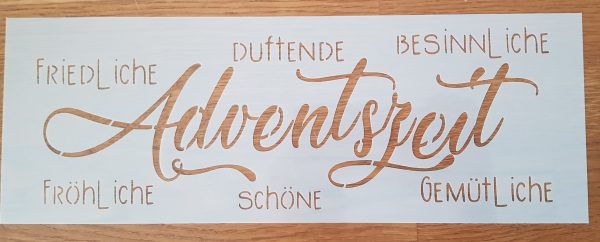 FRIEDLiche
DUfTENDE
BESiNNLiche
Adventszeit
FRÖHLiche
SCHÖNE
GEMÜTLiche